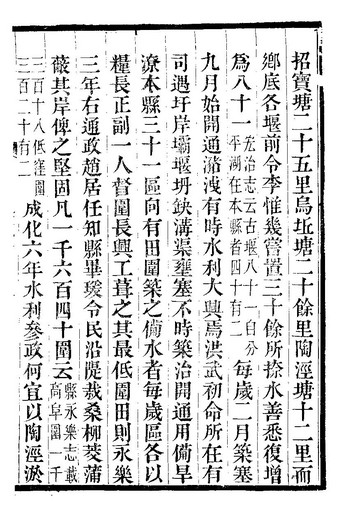 招寶塘二十五里烏坵塘二十餘里陶涇塘十二里而
鄉底各堰前令李惟幾嘗置三十餘所捺水善悉復增
爲八十一宏治志云古堰八十一自分平湖在本縣者四十有二每歲二月築塞
九月始開通瀦洩有時水利大興焉洪武初命所在有
司遇圩岸壩堰坍缺溝渠壅塞不時築治開通用備旱
潦本縣三十一區向有田圍築之備水者每歲區各以
糧長正副一人督圍長興工葺之其最低圍田則永樂
三年右通政趙居任知縣畢瑗令民沿隄栽桑柳菱蒲
蔽其岸俾之堅固凡一千六百四十圍云縣永樂志載高阜圍一千
三百十八低窪圍三百二十有二成化六年水利參政何宜以陶涇淤